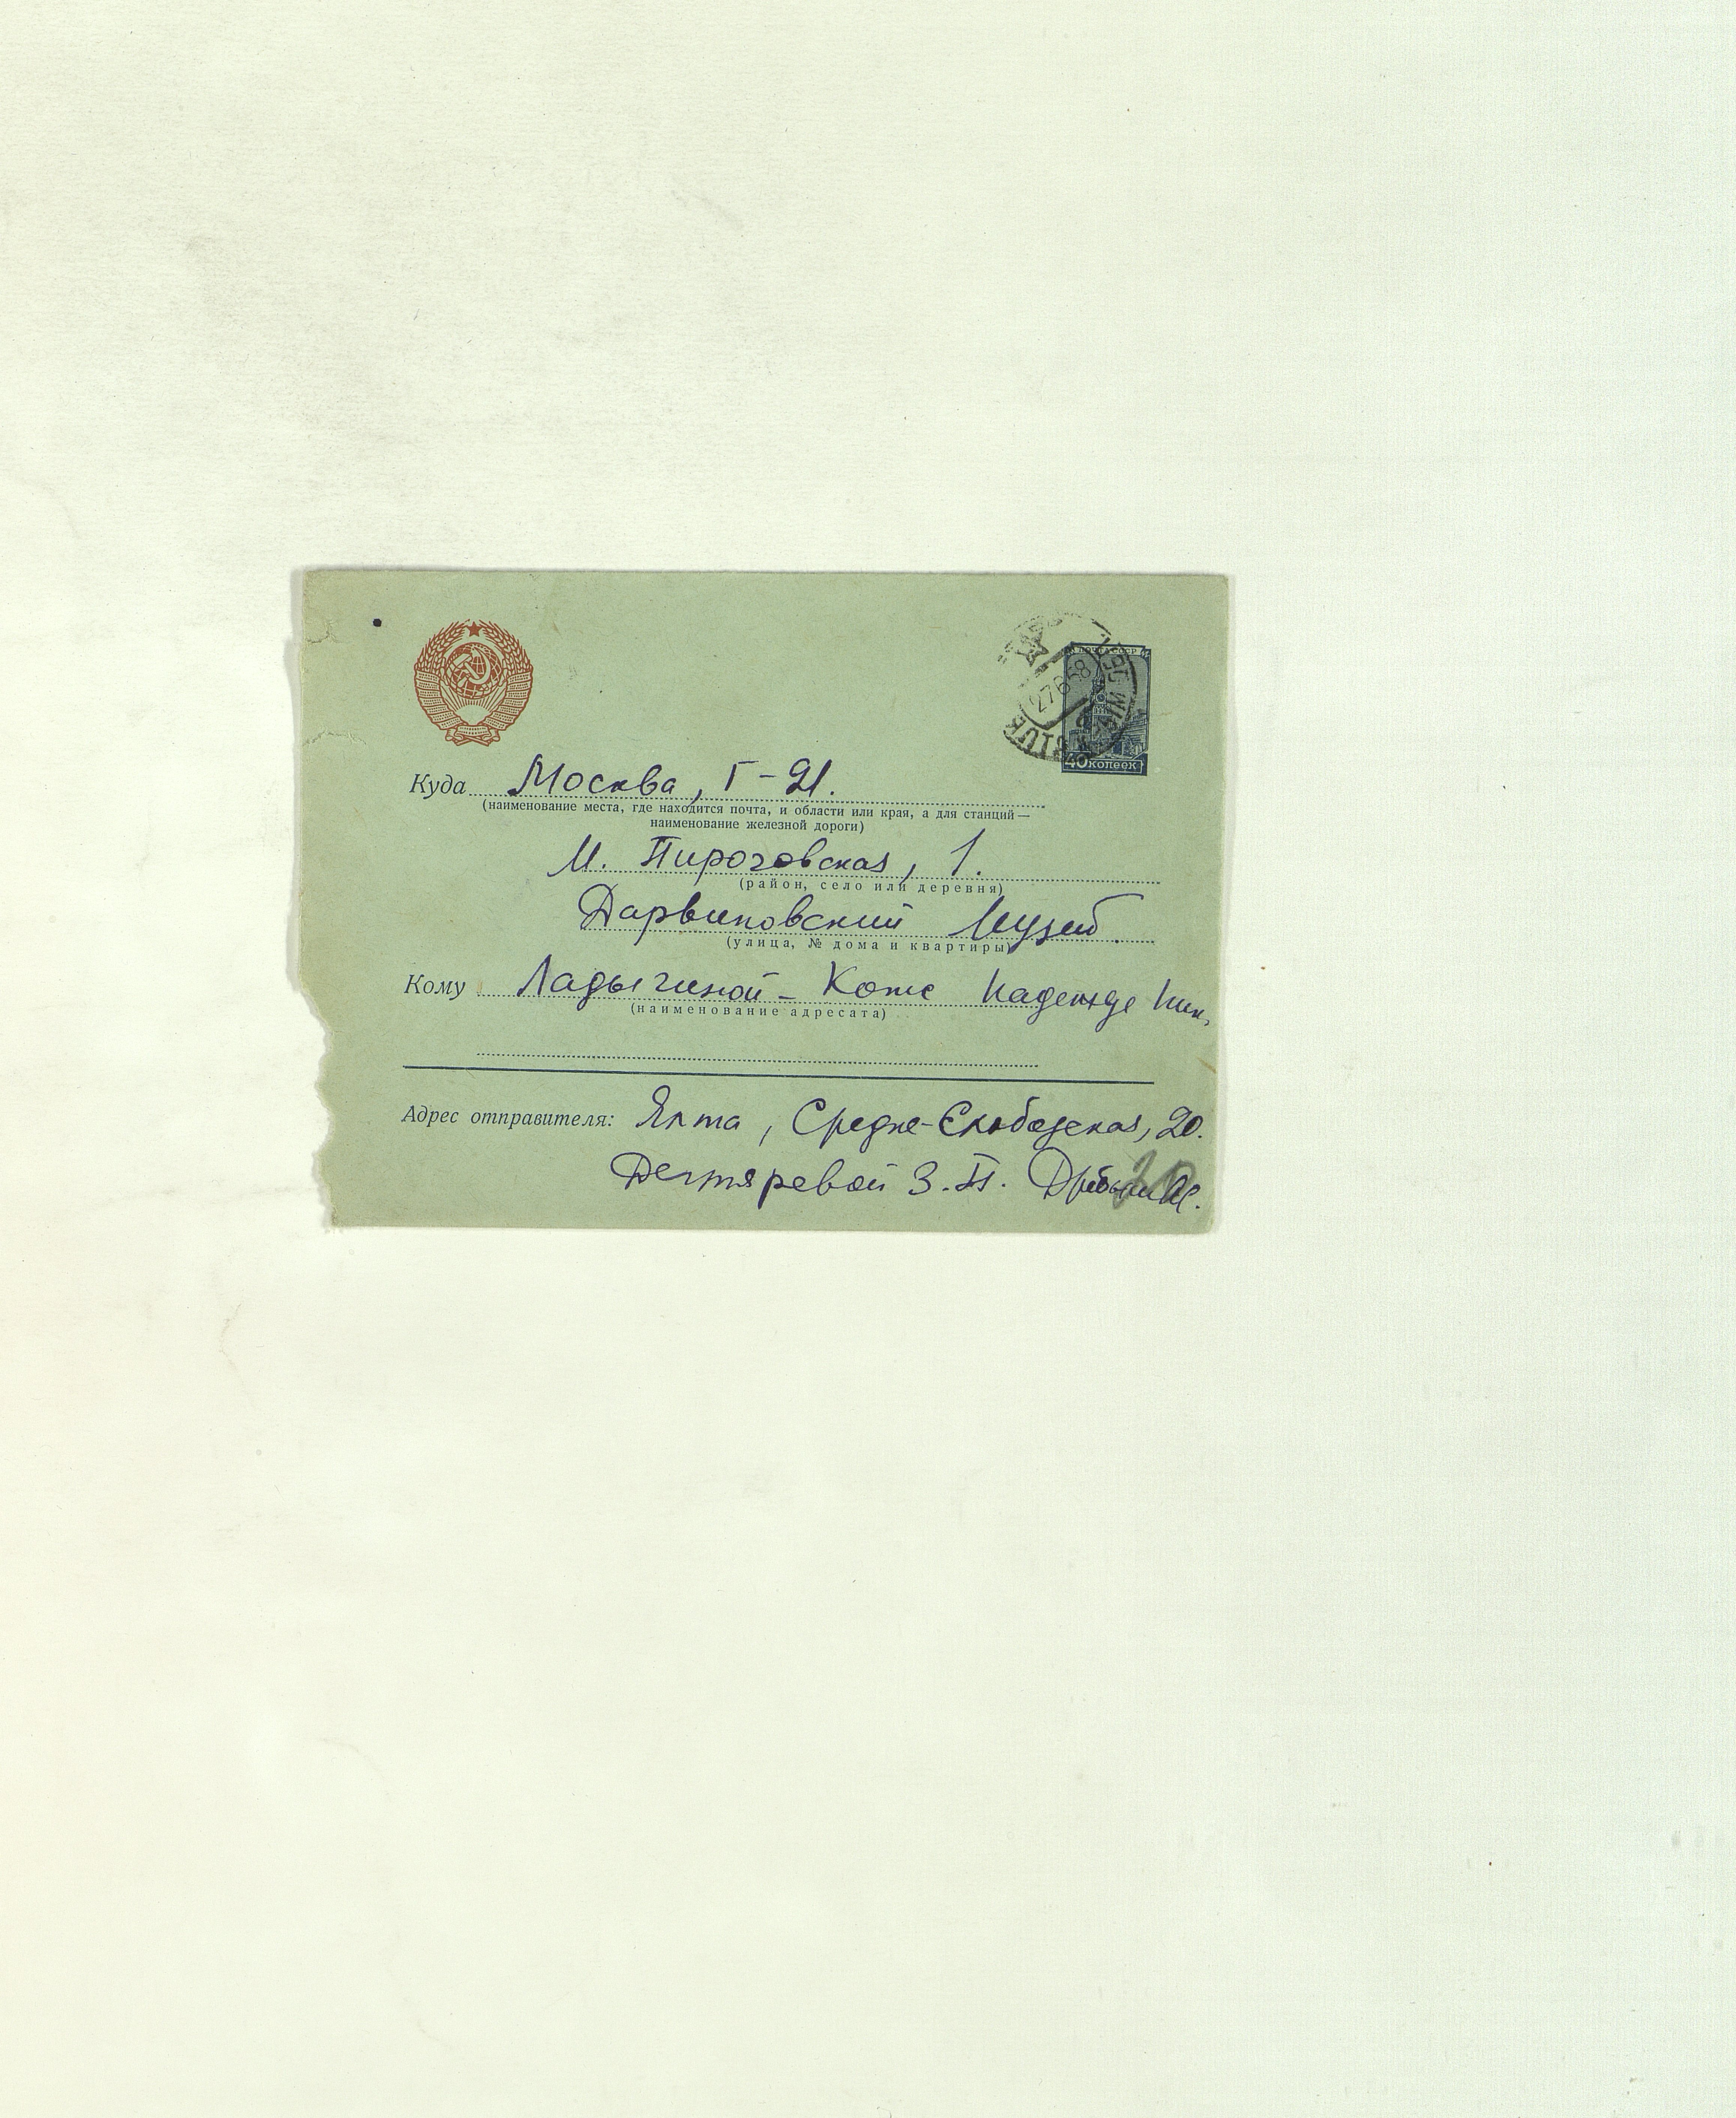 ПОЧТА СССР
27 6 58
ЯЛТА
40 КОПЕЕК
Куда Москва, Г-21.
(наименование места, где находится почта, и области или края, а для станций —
наименование железной дороги)
М. Пироговская, 1.
(район, село или деревня)
Дарвиновский Музей.
(улица, № дома и квартиры)
Кому Ладыгиной - Котс Надежде Ник.
(наименование адресата)
Адрес отправителя: Ялта, Средне-Слободская, 20.
Дегтяревой З. П.